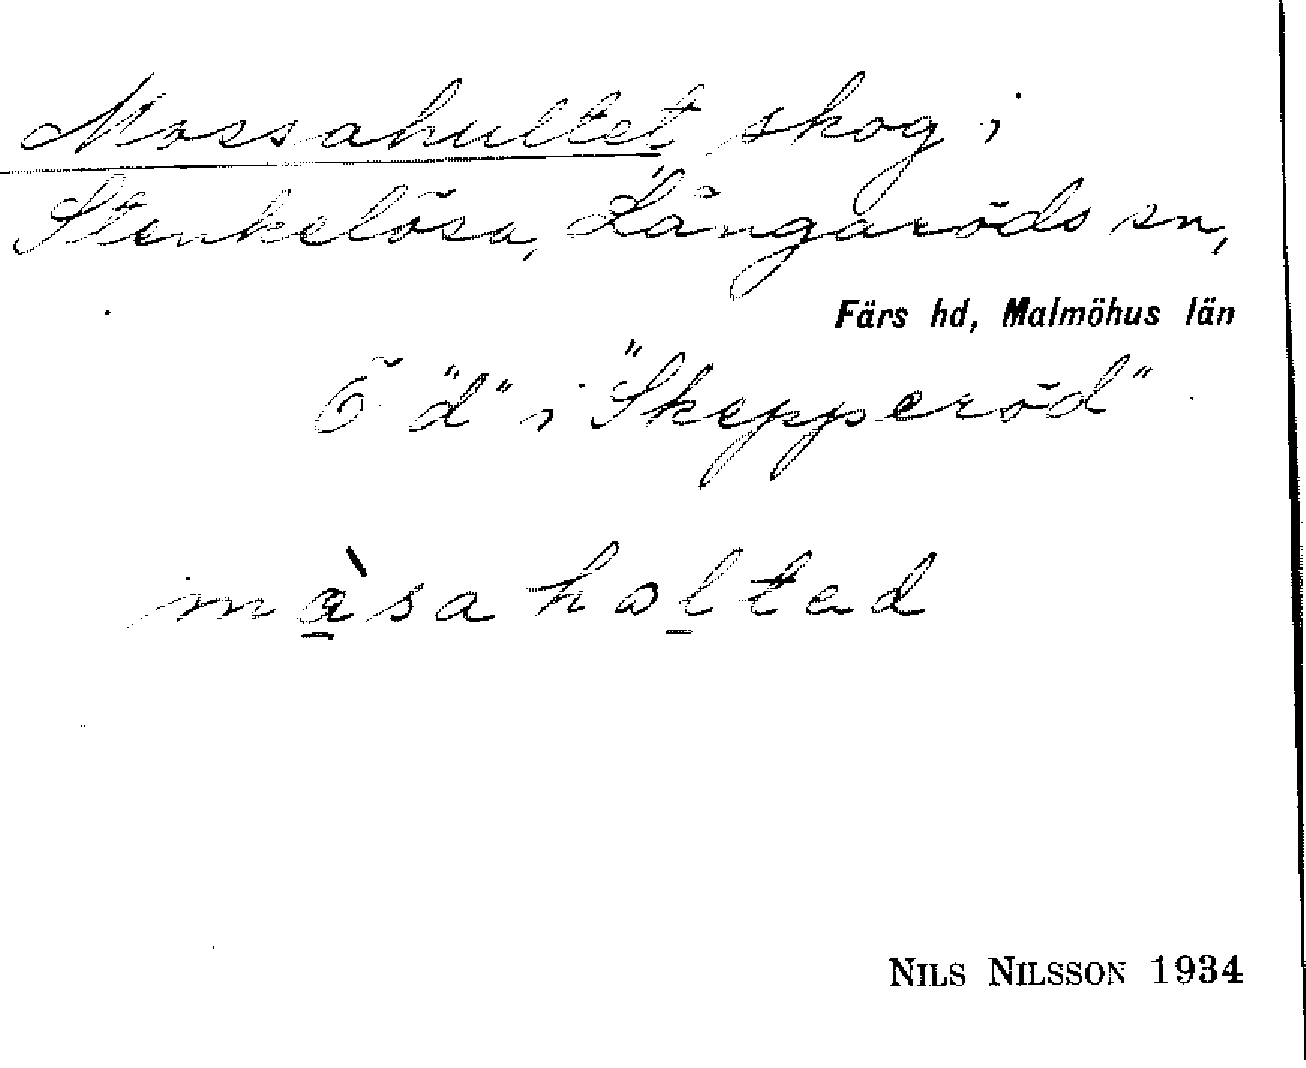 Mossahultet skog i
Stenkelösa, Långaröds sn,
Färs hd, Malmöhus län
Ö "d" i "Skepperöd"
màsahɷltad
NILS NILSSON 1934